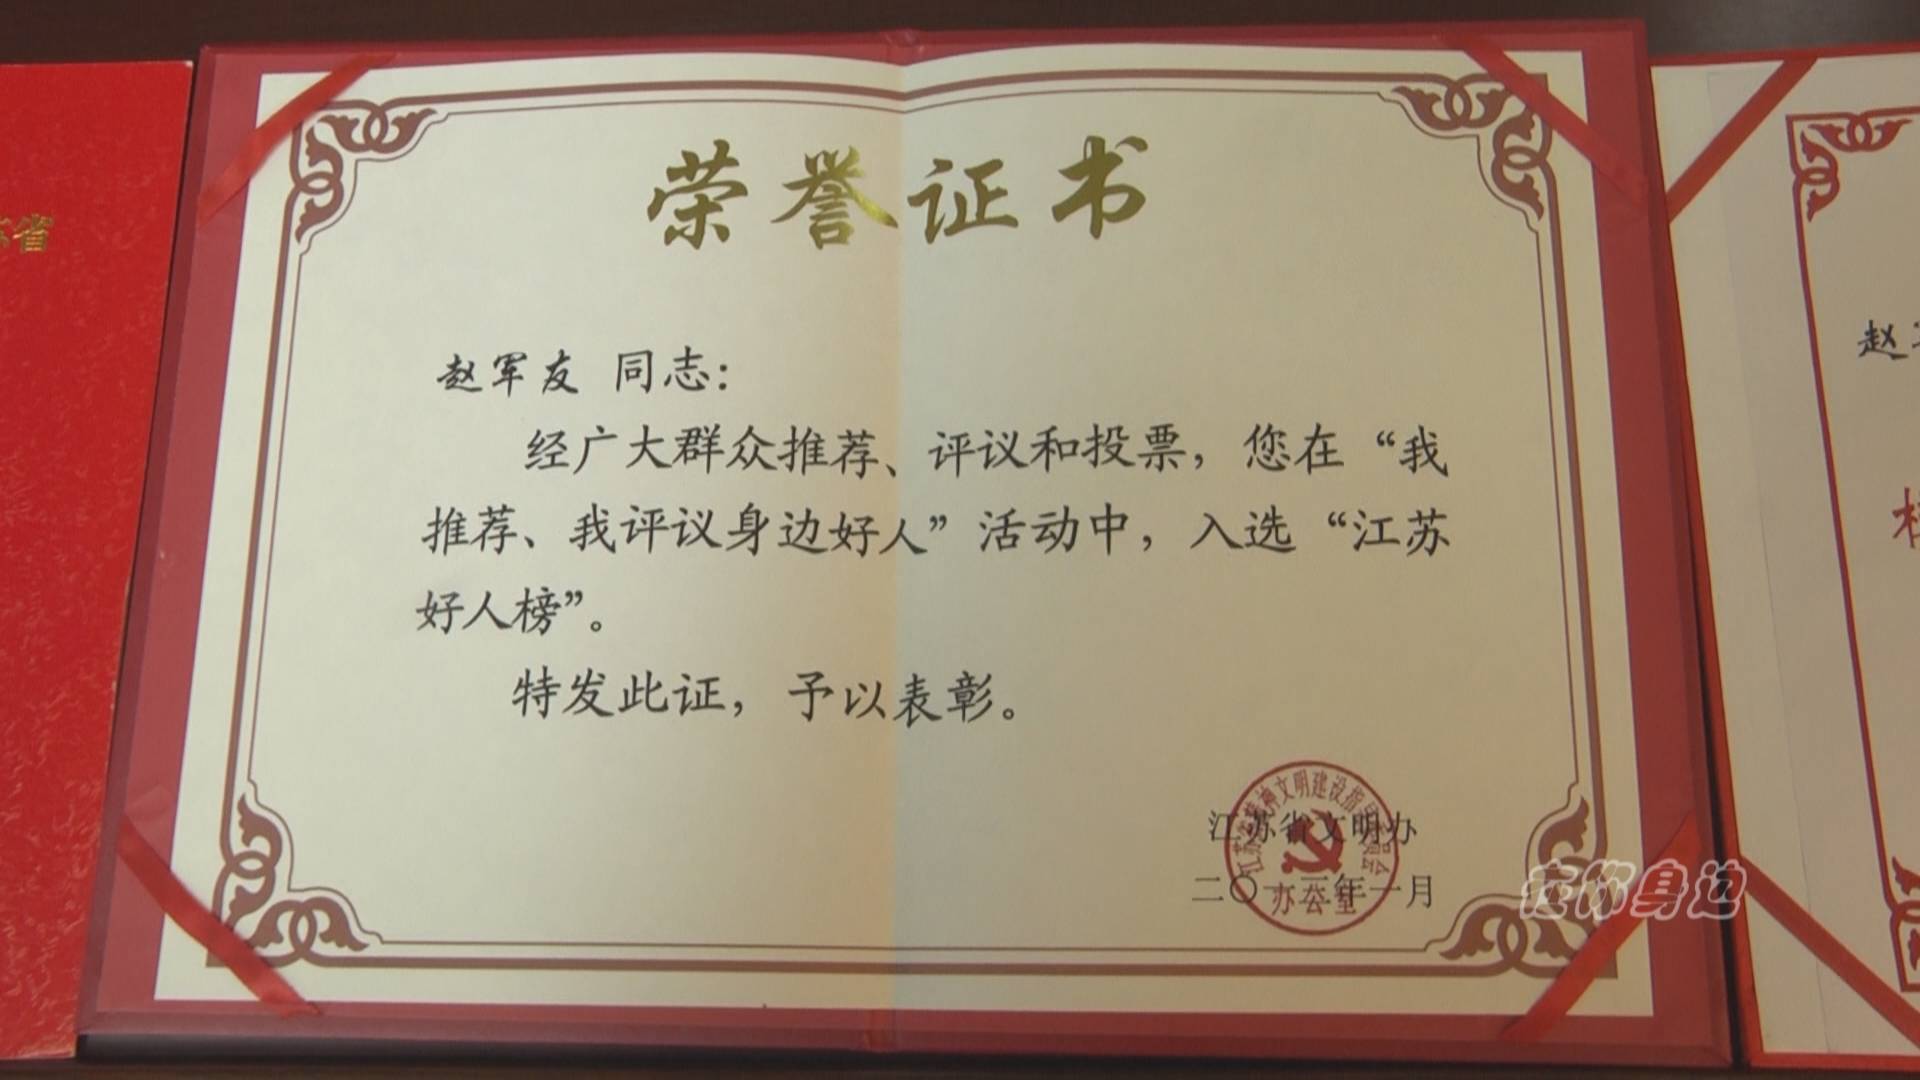 荣誉证书
赵军友 同志：
经广大群众推荐、评议和投票，您在“我
推荐、我评议身边好人”活动中，入选“江苏
好人榜”。
特发此证，予以表彰。
江苏省文明办
二〇一三年一月
办公室
在你身边
省
赵